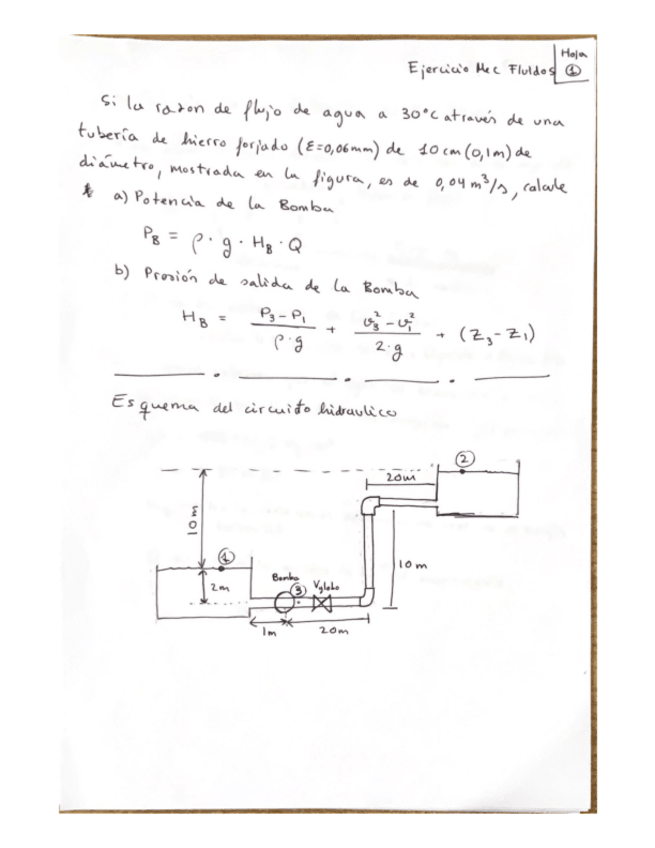 Hoja
Ejercicio Mec Fluidos ①
Si la razon de flujo de agua a 30°C através de una
tubería de hierro forjado (ε=0,06mm) de 10 cm (0,1m) de
diámetro, mostrada en la figura, es de 0,04 m³/s, calcule
a) Potencia de la Bomba
P_B = ρ · g · H_B · Q
b) Presión de salida de la Bomba
H_B = (P₃ - P₁)/(ρ·g) + (v₃² - v₁²)/(2·g) + (Z₃ - Z₁)
Esquema del circuito hidraulico
②
20m
10m
①
10m
2m
Bomba
③
Vglobo
1m
20m